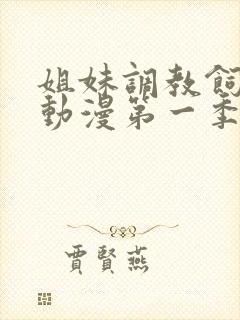 姐妹調教飼
動漫第一季
賈賢燕